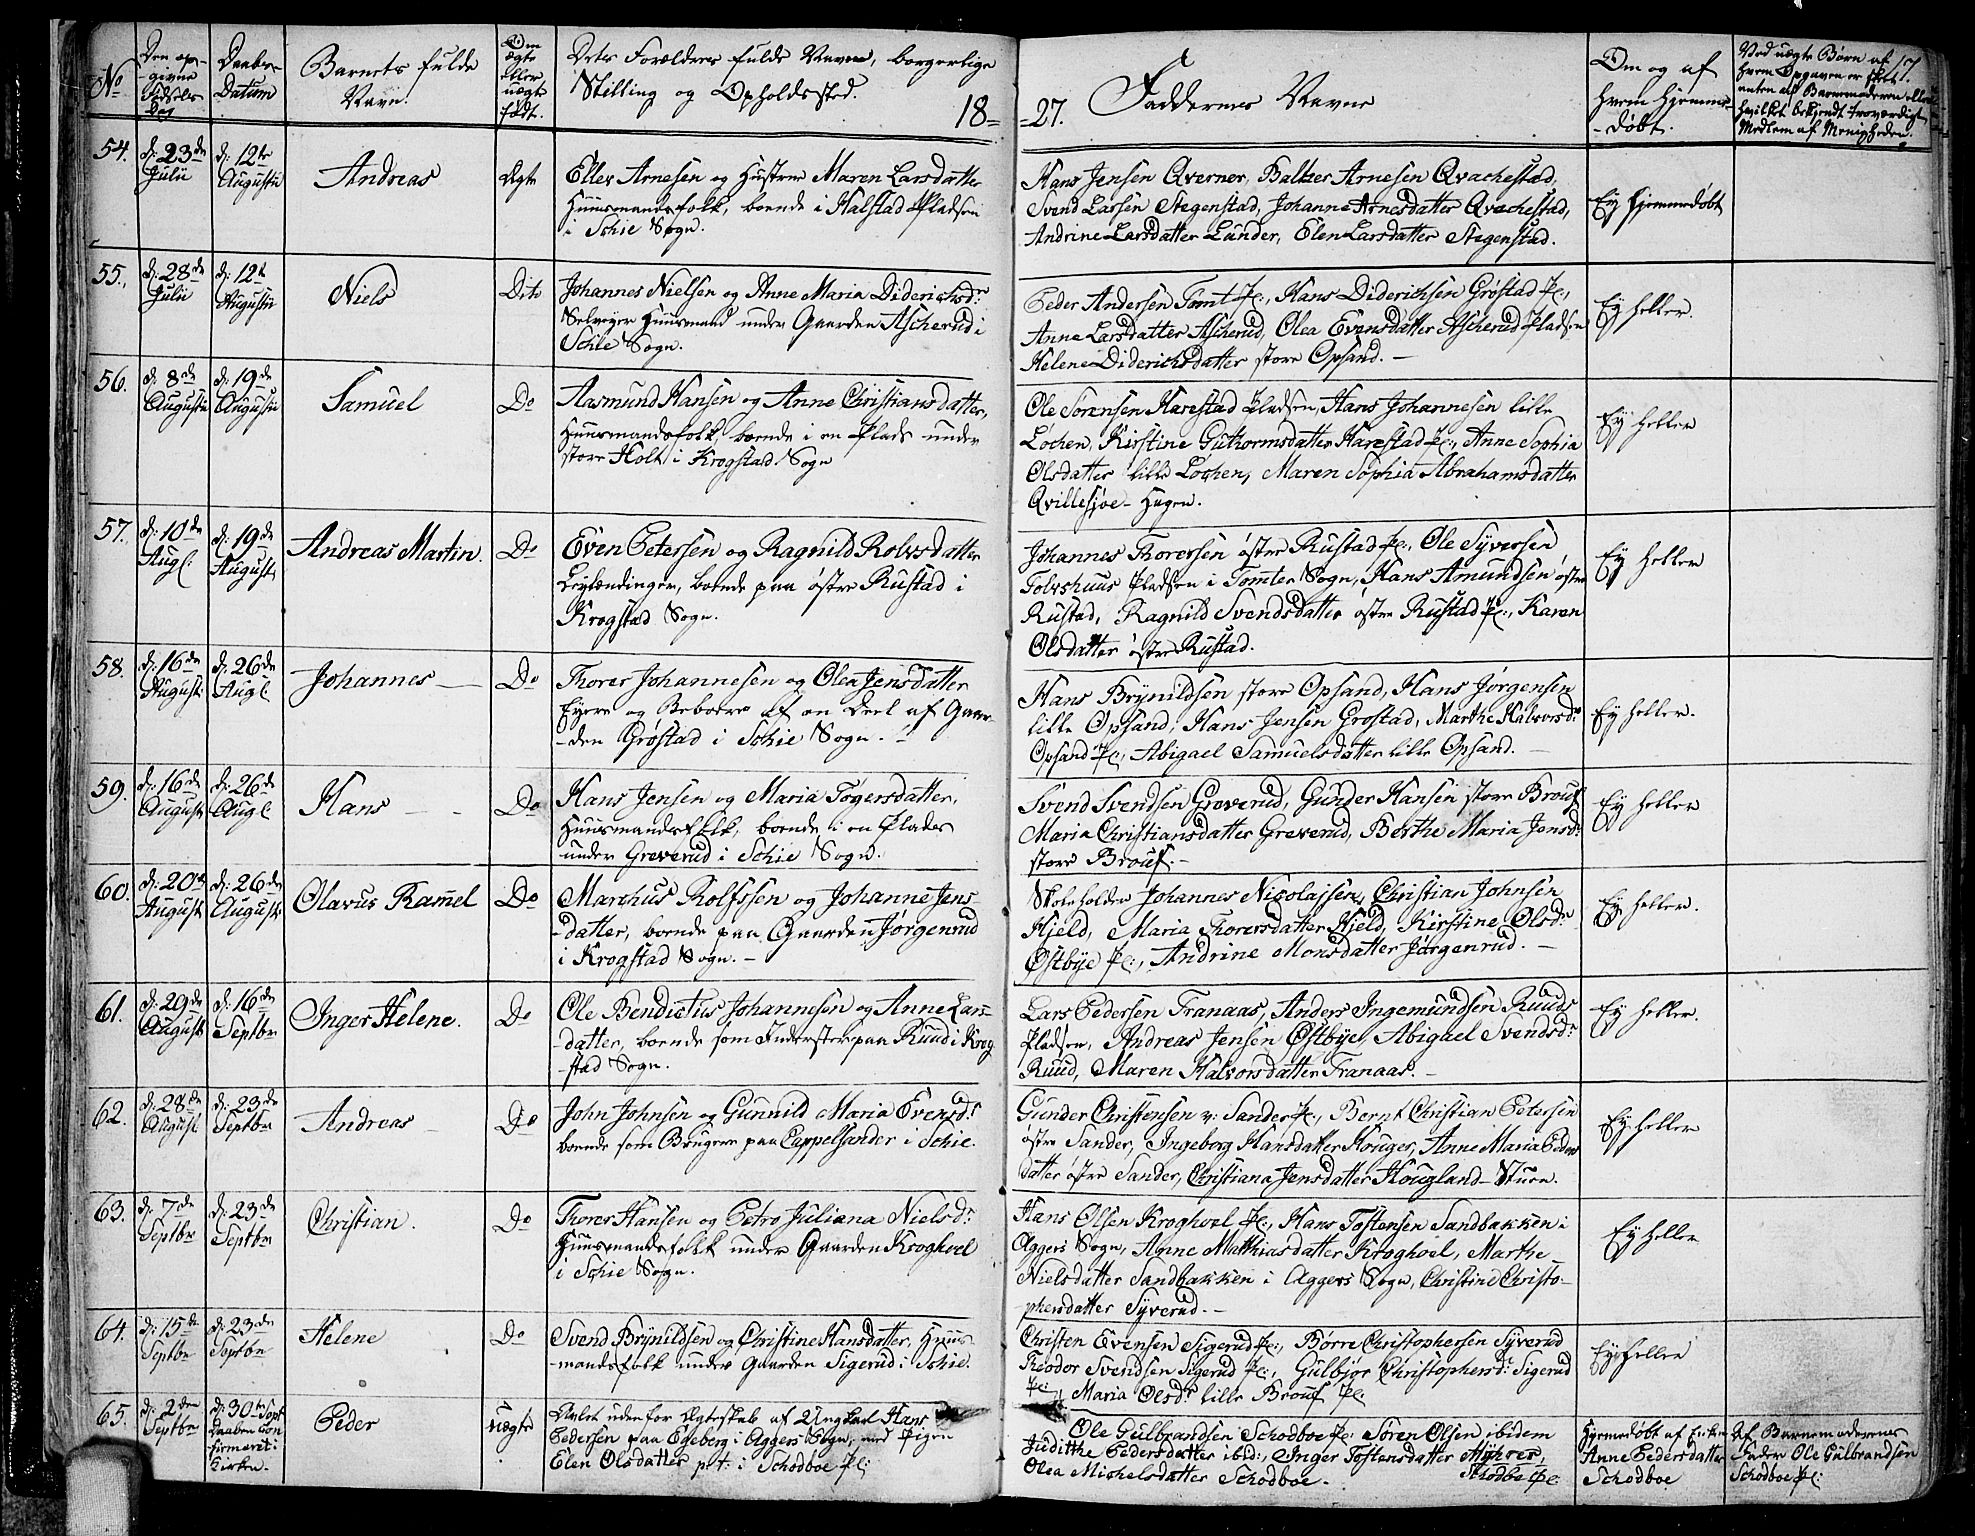 No
Den op-
givne
Fødsels
Dag
Daabs-
Datum
Barnets fulde
Navn.
Om
ægte
eller
uægte
født.
Dets Forældres fulde Navne, borgerlige
Stilling og Opholdssted.
18=
=27.
Faddernes Navne
Om og af
hvem hjemme-
-døbt.
Ved uægte Børn af
hvem Opgaven er skeet
enten af Barnemoderen eller
hvilket bekjendt troværdigt
Medlem af Menigheden.
17.
54.
d: 23de
Julii
d: 12te
Augustii
Andreas
Ægte
Eller Arnesen og Hustrue Maren Larsdatter
Huusmandsfolk, boende i Halstad Pladsen
i Schie Sogn.
Hans Jensen Qverner, Baltzer Arnesen Qvachestad,
Svend Larsen Stegenstad, Johanne Arnesdatter Qvachestad,
Andrine Larsdatter Lunder, Elen Larsdatter Stegenstad.
Ey hjemmedøbt
55.
d: 28de
Julii
d: 12te
Augustii
Niels
Dito
Johannes Nielsen og Anne Maria Diderichsdr:
Selveyer Huusmand under Gaarden Ascherud i
Schie Sogn.
Peder Andersen Tomt Pl:, Hans Diderichsen Grøstad Pl:,
Anne Larsdatter Ascherud, Olea Evensdatter Ascherud Pladsen
Helene Diderichsdatter store Opsand. —
Ey heller.
56.
d: 8de
Augustii
d: 19de
Augustii
Samuel
Do
Aasmund Hansen og Anne Christiansdatter,
Huusmandsfolk, boende i en Plads under
store Holt i Krogstad Sogn
Ole Sørensen Harestad Pladsen, Hans Johannesen lille
Løchen, Kirstine Guthormsdatter Harestad Pl:, Anne Sophia
Olsdatter lille Løchen, Maren Sophia Abrahamsdatter
Qvillesjøe-Hagen.
Ey heller
57.
d: 10de
Augl:
d: 19de
August:
Andreas Martin.
Do
Even Petersen og Ragnild Rolvsdatter
Leylændinger, boende paa østre Rustad i
Krogstad Sogn.
Johannes Thorersen østre Rustad Pl:, Ole Syversen
Folvshuus Pladsen i Tomter Sogn, Hans Amundsen østre
Rustad, Ragnild Svendsdatter østre Rustad Pl:, Karen
Olsdatter østre Rustad.
Ey heller
58.
d: 16de
August:
d: 26de
Augl:
Johannes
Do
Thorer Johannesen og Olea Jensdatter
Eyere og Beboere af en Deel af Gaar-
-den Grøstad i Schie Sogn. —
Hans Brynildsen store Opsand, Hans Jørgensen
lille Opsand, Hans Jensen Grostad, Marthe Halvorsdr:
Opsand Pl:, Abigael Samuelsdatter lille Opsand. —
Ey heller.
59.
d: 16de
August:
d: 26de
Augl:
Hans
Do
Hans Jensen og Maria Togersdatter,
Huusmandsfolk, boende i en Plads
under Greverud i Schie Sogn.
Svend Svendsen Greverud, Gunder Hansen store Brouf
Maria Christiansdatter Greverud, Berthe Maria Jensd:
store Brouf. —
Ey heller
60.
d: 20de
August:
d: 26de
August:
Olavus Ramel
Do
Marchus Rolfssen og Johanne Jens-
-datter, boende paa Gaarden Jørgenrud
i Krogstad Sogn. —
Skoleholder Johannes Nicolajsen, Christian Johnsen
Hjeld, Maria Thorersdatter Hjeld, Kirstine Olsdr:
Østbye Pl:, Andrine Monsdatter Jørgenrud. —
Ey heller.
61.
d: 29de
August:
d: 16de
Septbr
Inger Helene.
Do
Ole Bendictus Johannesen og Anne Lars-
-datter, boende som Inderster paa Ruud i Krog
-stad Sogn.
Lars Pedersen Franaas, Anders Ingemundsen Ruuds
Pladsen, Andreas Jensen Østbye, Abigael Svendsdr:
Ruud, Maren Halvorsdatter Franaas. —
Ey heller.
62.
d: 28de
August:
d: 23de
Septbr
Andreas
Do
John Johnsen og Gunnild Maria Evensdr:
boende som Brugere paa Cappelsander i Schie.
Gunder Christensen v: Sander Pl:, Bernt Christian Petersen
østre Sander, Ingeborg Hansdatter Kruger, Anne Maria Peders
datter østre Sander, Christiana Jensdatter Hougland-Stuen.
Ey heller
63.
d: 7de
Septbr
d: 23de
Septbr
Christian.
Do
Thorer Hansen og Petro Juliana Nielsdr:
Huusmandsfolk under Gaarden Kroghoel
i Schie Sogn.
Hans Olsen Kroghoel Pl:, Hans Tostensen Sandbakken i
Aggers Sogn, Anne Matthiasdatter Kroghoel, Marthe
Nielsdatter Sandbakken i Aggers Sogn, Christine Christo-
phersdatter Syverud. —
Ey heller
64.
d: 15de
Septbr
d: 23de
Septbr
Helene
Do
Svend Brynildsen og Christine Hansdatter, Huus-
-mandsfolk under Gaarden Sigerud i Schie.
Christen Evensen Sigerud Pl:, Børre Christophersen Syverud
Theodor Svendsen Sigerud Pl:, Gulbjør Christophersd: Sigerud
Pl: Maria Olsdr: lille Brouf Pl:
Ey heller
65.
d: 2den
Septbr
d: 30te Sept
Daaben Con
firmeret i
Kirken.
Peder
uægte
Avlet udenfor Ægteskab af Ungkarl Hans
Pedersen paa Egeberg i Aggers Sogn, med Pigen
Elen Olsdatter p: t: i Schodboe Pl:
Ole Gulbrandsen Schodboe Pl: Søren Olsen ibidem
Judithe Pedersdatter ibid:, Inger Tostensdatter Myhrer,
Olea Michelsdatter Schodboe. Skodbo Pl:
Hjemmedøbt af Enken
Anne Pedersdatter
Schodboe
Af Barnemoderens
Fader Ole Gulbrandsen
Schodboe Pl: